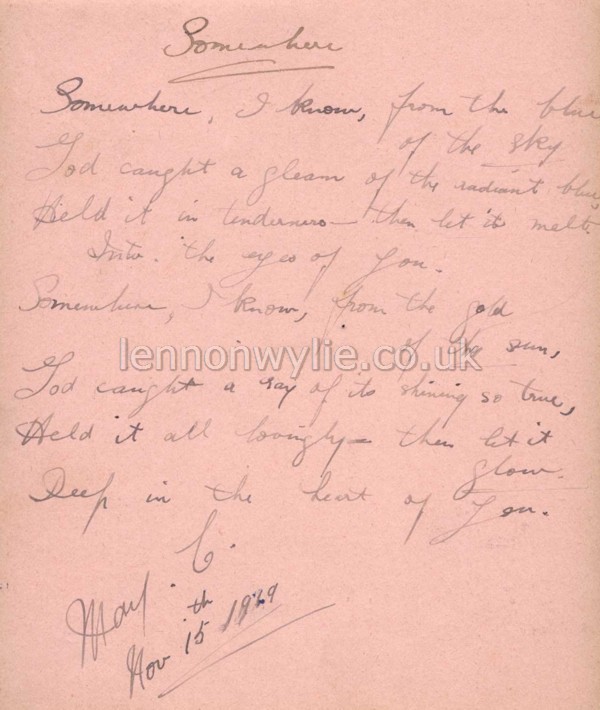 Somewhere
Somewhere, I know, from the blue
of the sky
God caught a gleam of the radiant blue,
Held it in tenderness— then let it melt.
Into the eyes of You.
Somewhere, I know, from the gold
of the sun,
lennonwylie.co.uk
God caught a ray of its shining so true,
Held it all lovingly— then let it
glow.
Deep in the heart of You.
C.
Nov 15th 1929